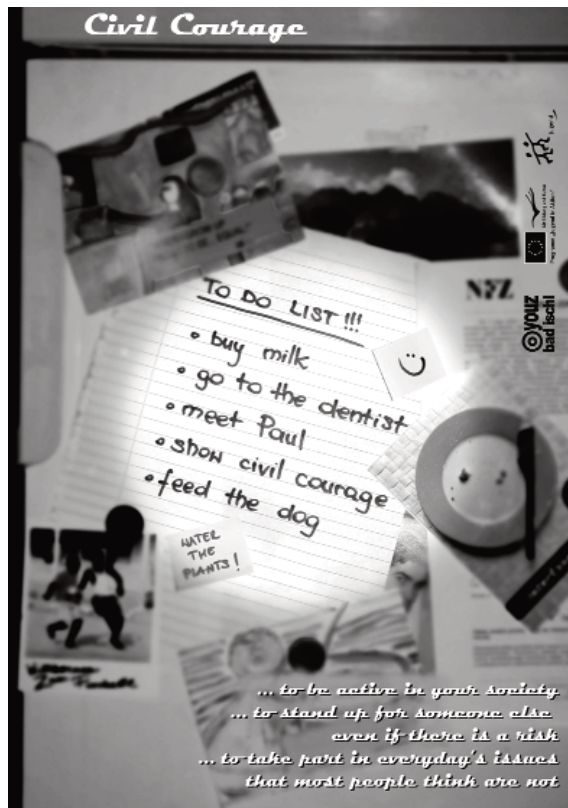 Civil Courage
TO DO LIST!!!
• buy milk
• go to the dentist
• meet Paul
• show civil courage
• feed the dog
WATER
THE
PLANTS!
NFZ
youz
bad ischl
... to be active in your society
... to stand up for someone else
even if there is a risk
... to take part in everyday's issues
that most people think are not